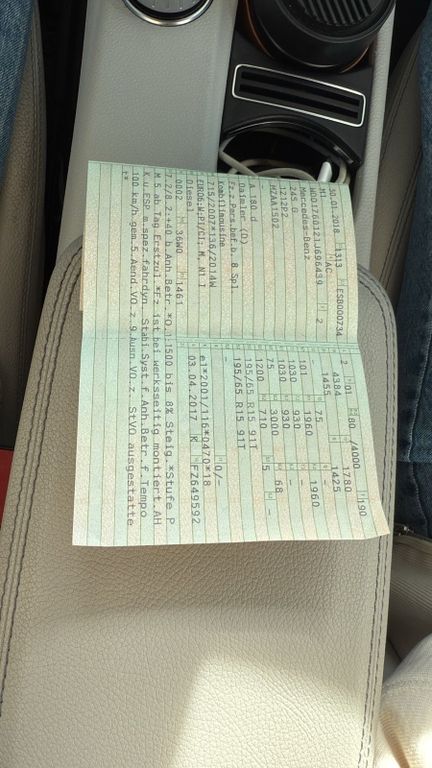 30.01.2018 1313 ESB000734
M1 AC 2
WDD1760121J696439
Mercedes-Benz
245 G
1212P2
M7AA1502
A 180 d
Daimler (D)
Fz.z.Pers.bef.b. 8 Spl
Kombilimousine
715/2007*136/2014W
EURO6;W;PI/CI; M, N1 I
Diesel
0002 36W0 1461
2 01 80 /4000 190
4384 1780
1455 75 1425
101 1960 - 1960
1030 930 -
1030 930 - 68
75 3000
1200 710 5 -
195/65 R15 91T
195/65 R15 91T
-
-
e1*2001/116*0470*18
03.04.2017 K FZ649592
7.2/8.2:+40 b.Anh.Betr.*O.1:1500 bis 8% Steig.*Stufe P
M 5 ab Tag Erstzul.*Fz ist bei werksseitig montiert.AH
K u.ESP m.spez.fahrdyn. Stabi.Syst.f.Anh.Betr.f.Tempo
100 km/h gem.5.Aend.VO z.9.Ausn.VO z. StVO ausgestatte
t*